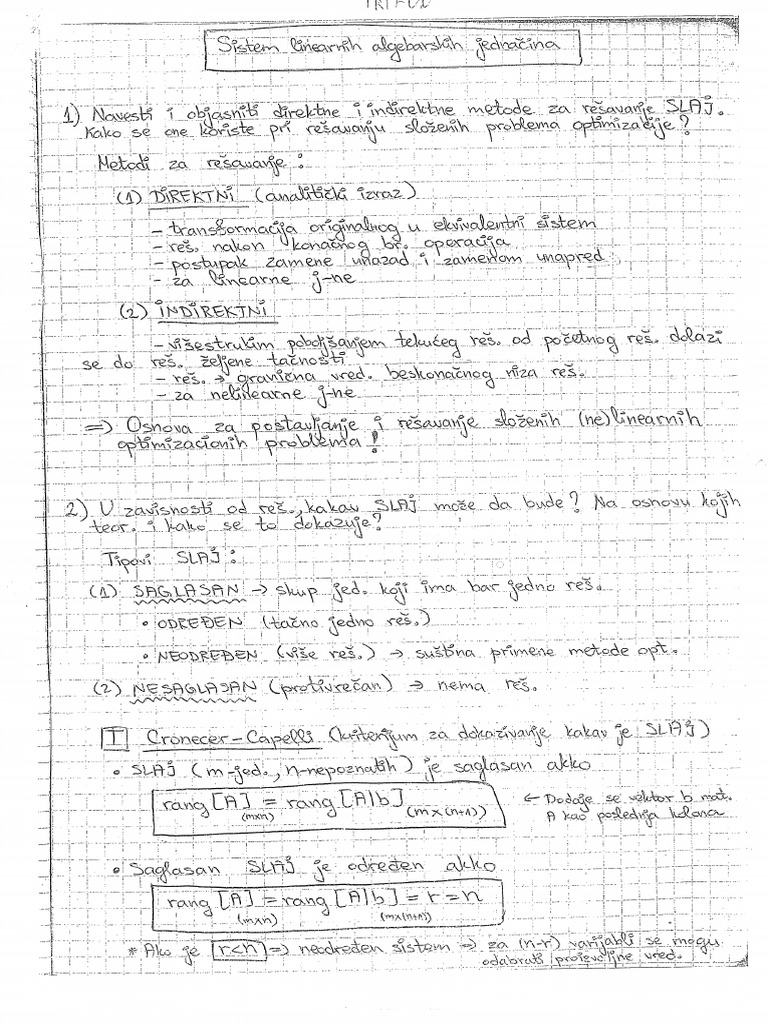 Sistem linearnih algebarskih jednačina
1) Navesti i objasniti direktne i indirektne metode za rešavanje SLAJ.
Kako se one koriste pri rešavanju složenih problema optimizacije?
Metodi za rešavanje:
(1) DIREKTNI (analitički izraz)
- transformacija originalnog u ekvivalentni sistem
- reš. nakon konačnog br. operacija
- postupak zamene unazad i zamenom unapred
- za linearne j-ne
(2) INDIREKTNI
- višestrukim poboljšanjem tekućeg reš. od početnog reš. dolazi
se do reš. željene tačnosti
- reš. → granična vred. beskonačnog niza reš.
- za nelinearne j-ne
=> Osnova za postavljanje i rešavanje složenih (ne)linearnih
optimizacionih problema!
2) U zavisnosti od reš., kakav SLAJ može da bude? Na osnovu kojih
teor. i kako se to dokazuje?
Tipovi SLAJ:
(1) SAGLASAN → skup jed. koji ima bar jedno reš.
• ODREĐEN (tačno jedno reš.)
• NEODREĐEN (više reš.) → suština primene metode opt.
(2) NESAGLASAN (protivrečan) → nema reš.
I Cronecer-Capelli (kriterijum za dokazivanje kakav je SLAJ)
• SLAJ (m-jed., n-nepoznatih) je saglasan akko
rang [A] (m×n) = rang [A|b] (m×(n+1)) ← Dodaje se vektor b mat.
A kao poslednja kolona
• Saglasan SLAJ je određen akko
rang [A] (m×n) = rang [A|b] (m×(n+1)) = r = n
* Ako je r<n => neodređen sistem => za (n-r) varijabli se mogu
odabrati proizvoljne vred.